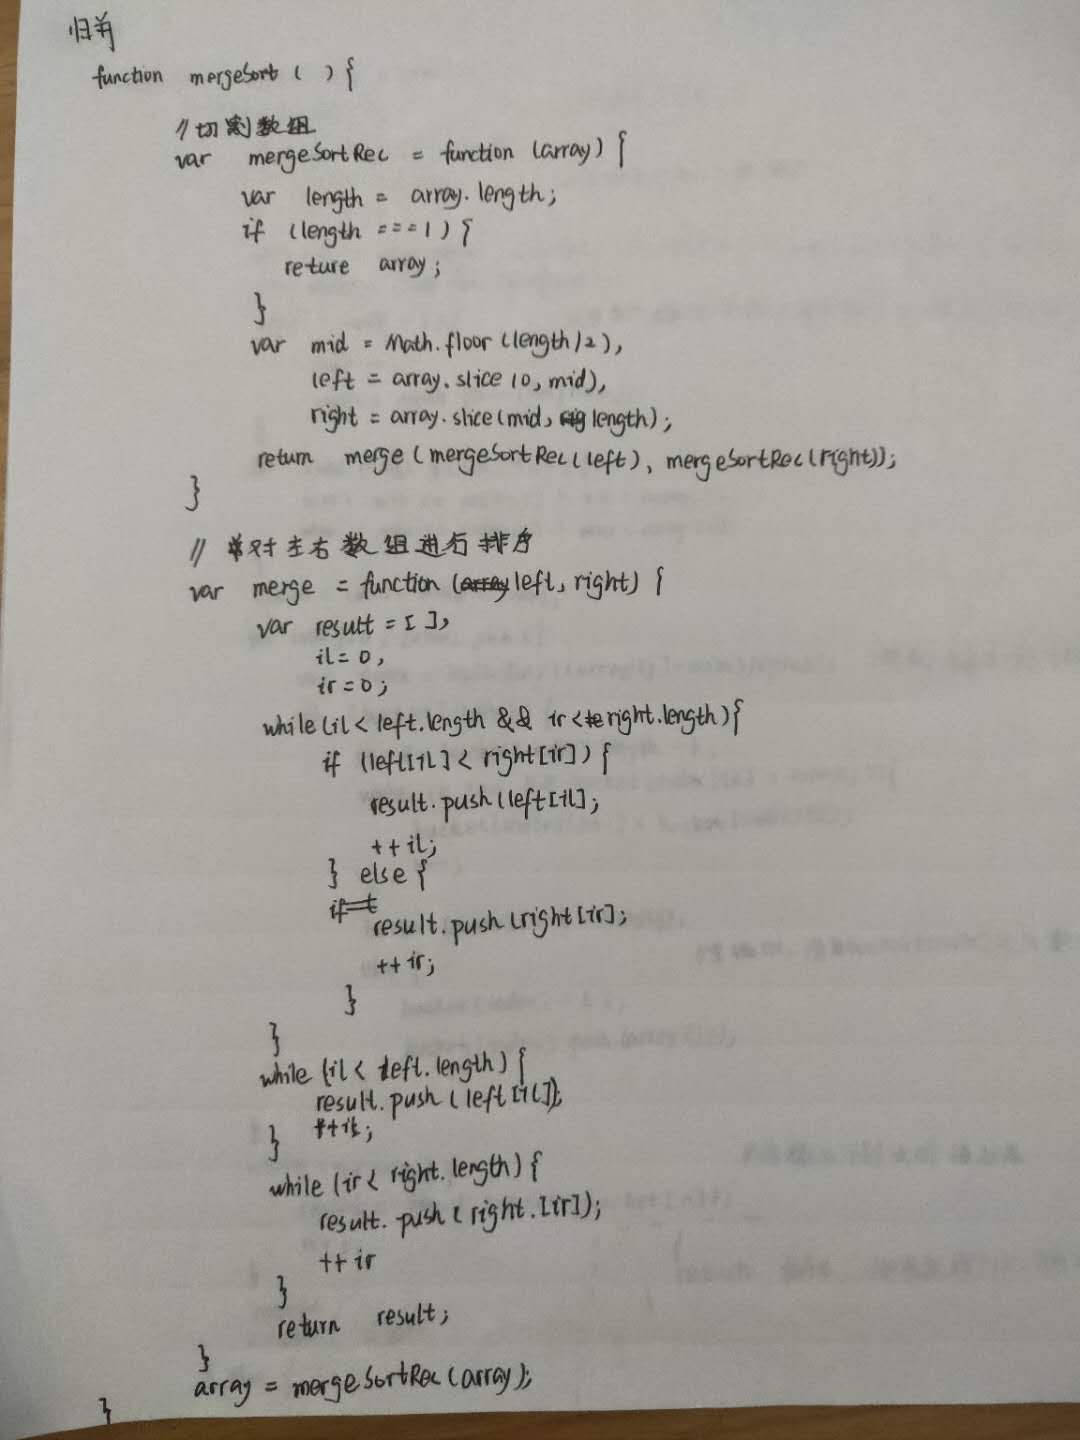 归并
function mergeSort ( ) {
//切割数组
var mergeSortRec = function (array) {
var length = array.length;
if (length ===1) {
reture array;
}
var mid = Math.floor (length/2),
left = array.slice (0, mid),
right = array.slice (mid, length);
return merge (mergeSortRec (left), mergeSortRec (right));
}
// 对左右数组进行排序
var merge = function (left, right) {
var result = [ ],
il=0,
ir=0;
while (il < left.length && ir < right.length) {
if (left[il] < right[ir]) {
result.push (left[il];
++il;
} else {
result.push (right[ir];
++ir;
}
}
while (il < left.length) {
result.push (left[il]);
++il;
}
while (ir < right.length) {
result.push (right.[ir]);
++ir
}
return result;
}
array = mergeSortRec (array);
}